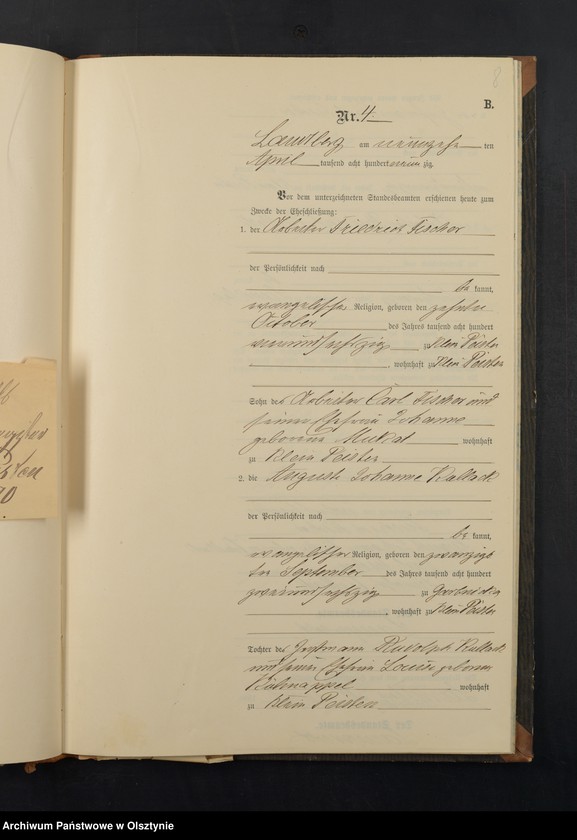 8
B.
Nr. 4.
Landsberg am neunzehn ten
April tausend acht hundert neun zig.
Vor dem unterzeichneten Standesbeamten erschienen heute zum
Zwecke der Eheschließung:
1. der Arbeiter Friedrich Fischer
der Persönlichkeit nach
be kannt,
evangelischer Religion, geboren den zehnten
October des Jahres tausend acht hundert
zu Klein Peisten
, wohnhaft zu Klein Peisten
Sohn des Arbeiter Carl Fischer und
seiner Ehefrau Johanne
geborene wohnhaft
zu Klein Peisten
2. die Auguste Johanne Kallack
der Persönlichkeit nach
be kannt,
evangelischer Religion, geboren den zwanzigs
ten September des Jahres tausend acht hundert
zweiundsechszig zu
, wohnhaft zu Klein Peisten
Tochter des Instmann Rudolph Kallack
und seiner Ehefrau Louise geborene
wohnhaft
zu Klein Peisten
Archiwum Państwowe w Olsztynie